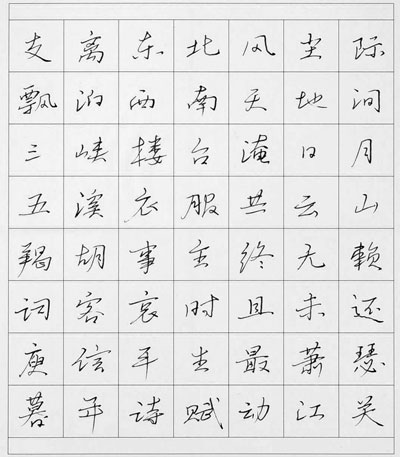 支离东北风尘际
飘泊西南天地间
三峡楼台淹日月
五溪衣服共云山
羯胡事主终无赖
词客哀时且未还
庾信平生最萧瑟
暮年诗赋动江关